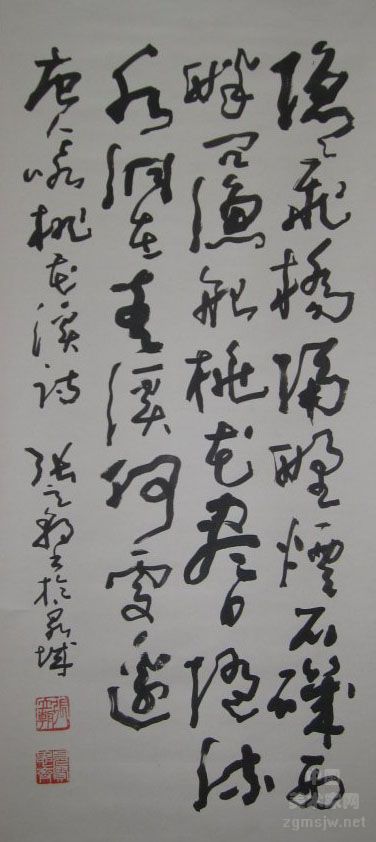 隱〻飛橋隔野煙石磯西
畔問漁船桃花盡日隨流
水洞在清溪何處邊
唐人詠桃花溪詩 張立朝書於泉城
美术家网
zgmsjw.net